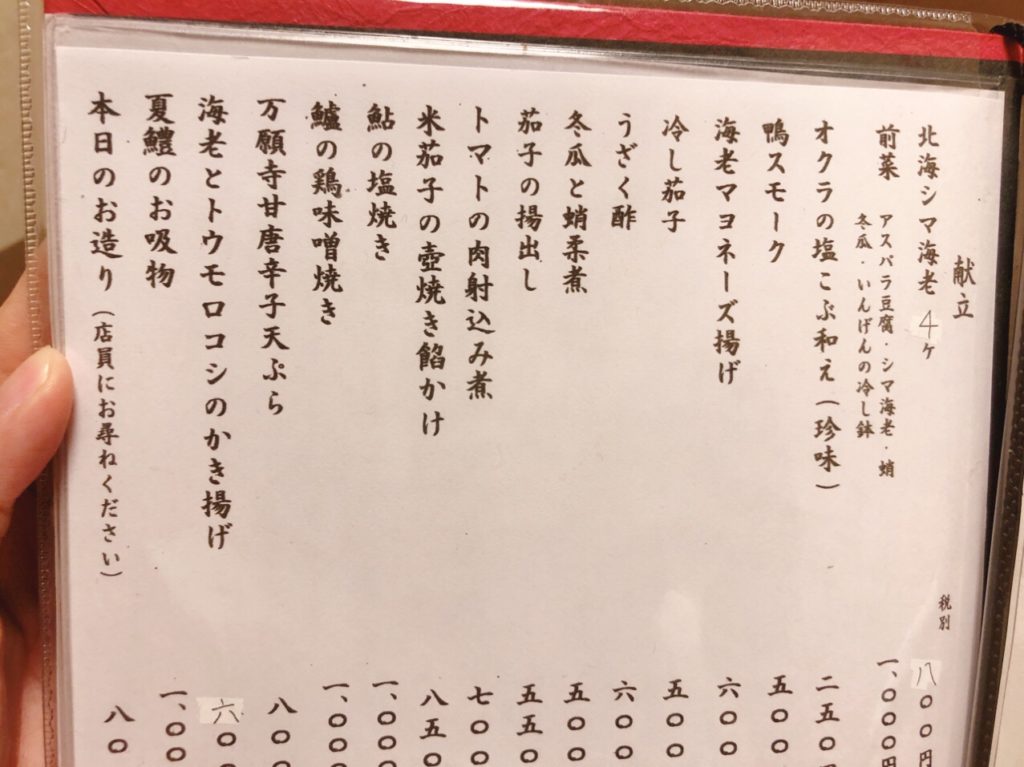 献立
税別
北海シマ海老 4ヶ 八〇〇円
前菜 アスパラ豆腐・シマ海老・蛸
冬瓜・いんげんの冷し鉢 一、〇〇〇円
オクラの塩こぶ和え（珍味） 二五〇円
鴨スモーク 五〇〇
海老マヨネーズ揚げ 六〇〇
冷し茄子 五〇〇
うざく酢 六〇〇
冬瓜と蛸柔煮 五〇〇
茄子の揚出し 五五〇
トマトの肉射込み煮 七〇〇
米茄子の壺焼き餡かけ 八五〇
鮎の塩焼き 一、〇〇
鱸の鶏味噌焼き 一、〇〇
万願寺甘唐辛子天ぷら 八〇
海老とトウモロコシのかき揚げ 六〇
夏鱧のお吸物 一、〇〇
本日のお造り（店員にお尋ねください） 八〇